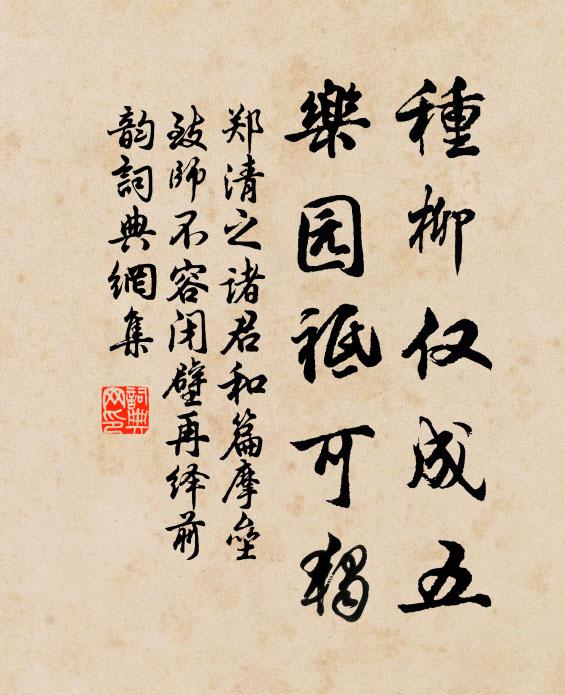 種柳仅成五
樂园祗可獨
郑清之诸君和篇摩垒
致师不容闭壁再绎前
韵詞典網集
詞典
网印